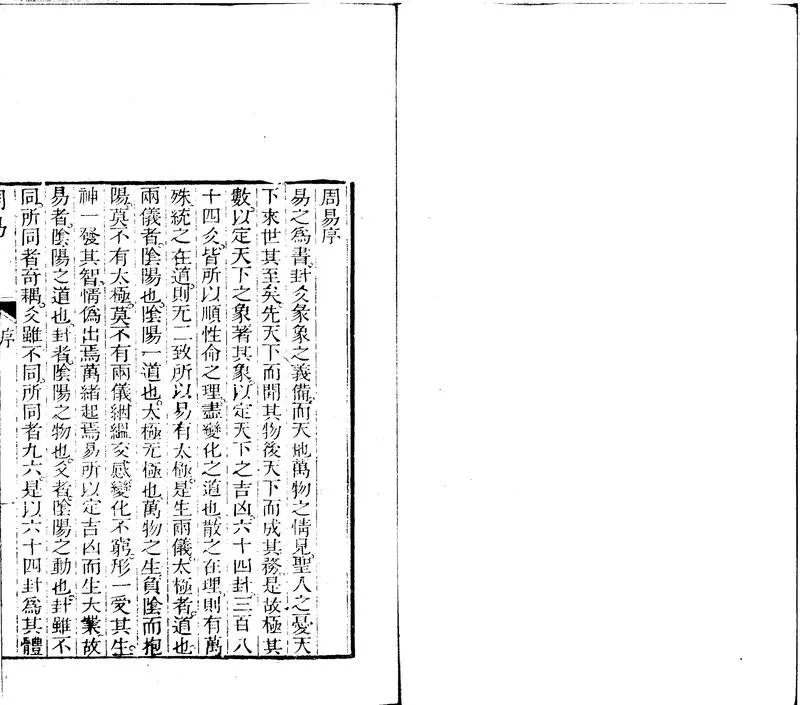 周易序
易之爲書卦爻彖象之義備而天地萬物之情見聖人之憂天
下來世其至矣先天下而開其物後天下而成其務是故極其
數以定天下之象著其象以定天下之吉凶六十四卦三百八
十四爻皆所以順性命之理盡變化之道也散之在理則有萬
殊統之在道則无二致所以易有太極是生兩儀太極者道也
兩儀者陰陽也陰陽一道也太極无極也萬物之生負陰而抱
陽莫不有太極莫不有兩儀絪縕交感變化不窮形一受其生
神一發其智情僞出焉萬緒起焉易所以定吉凶而生大業故
易者陰陽之道也卦者陰陽之物也爻者陰陽之動也卦雖不
同所同者奇耦爻雖不同所同者九六是以六十四卦爲其體
周易
序